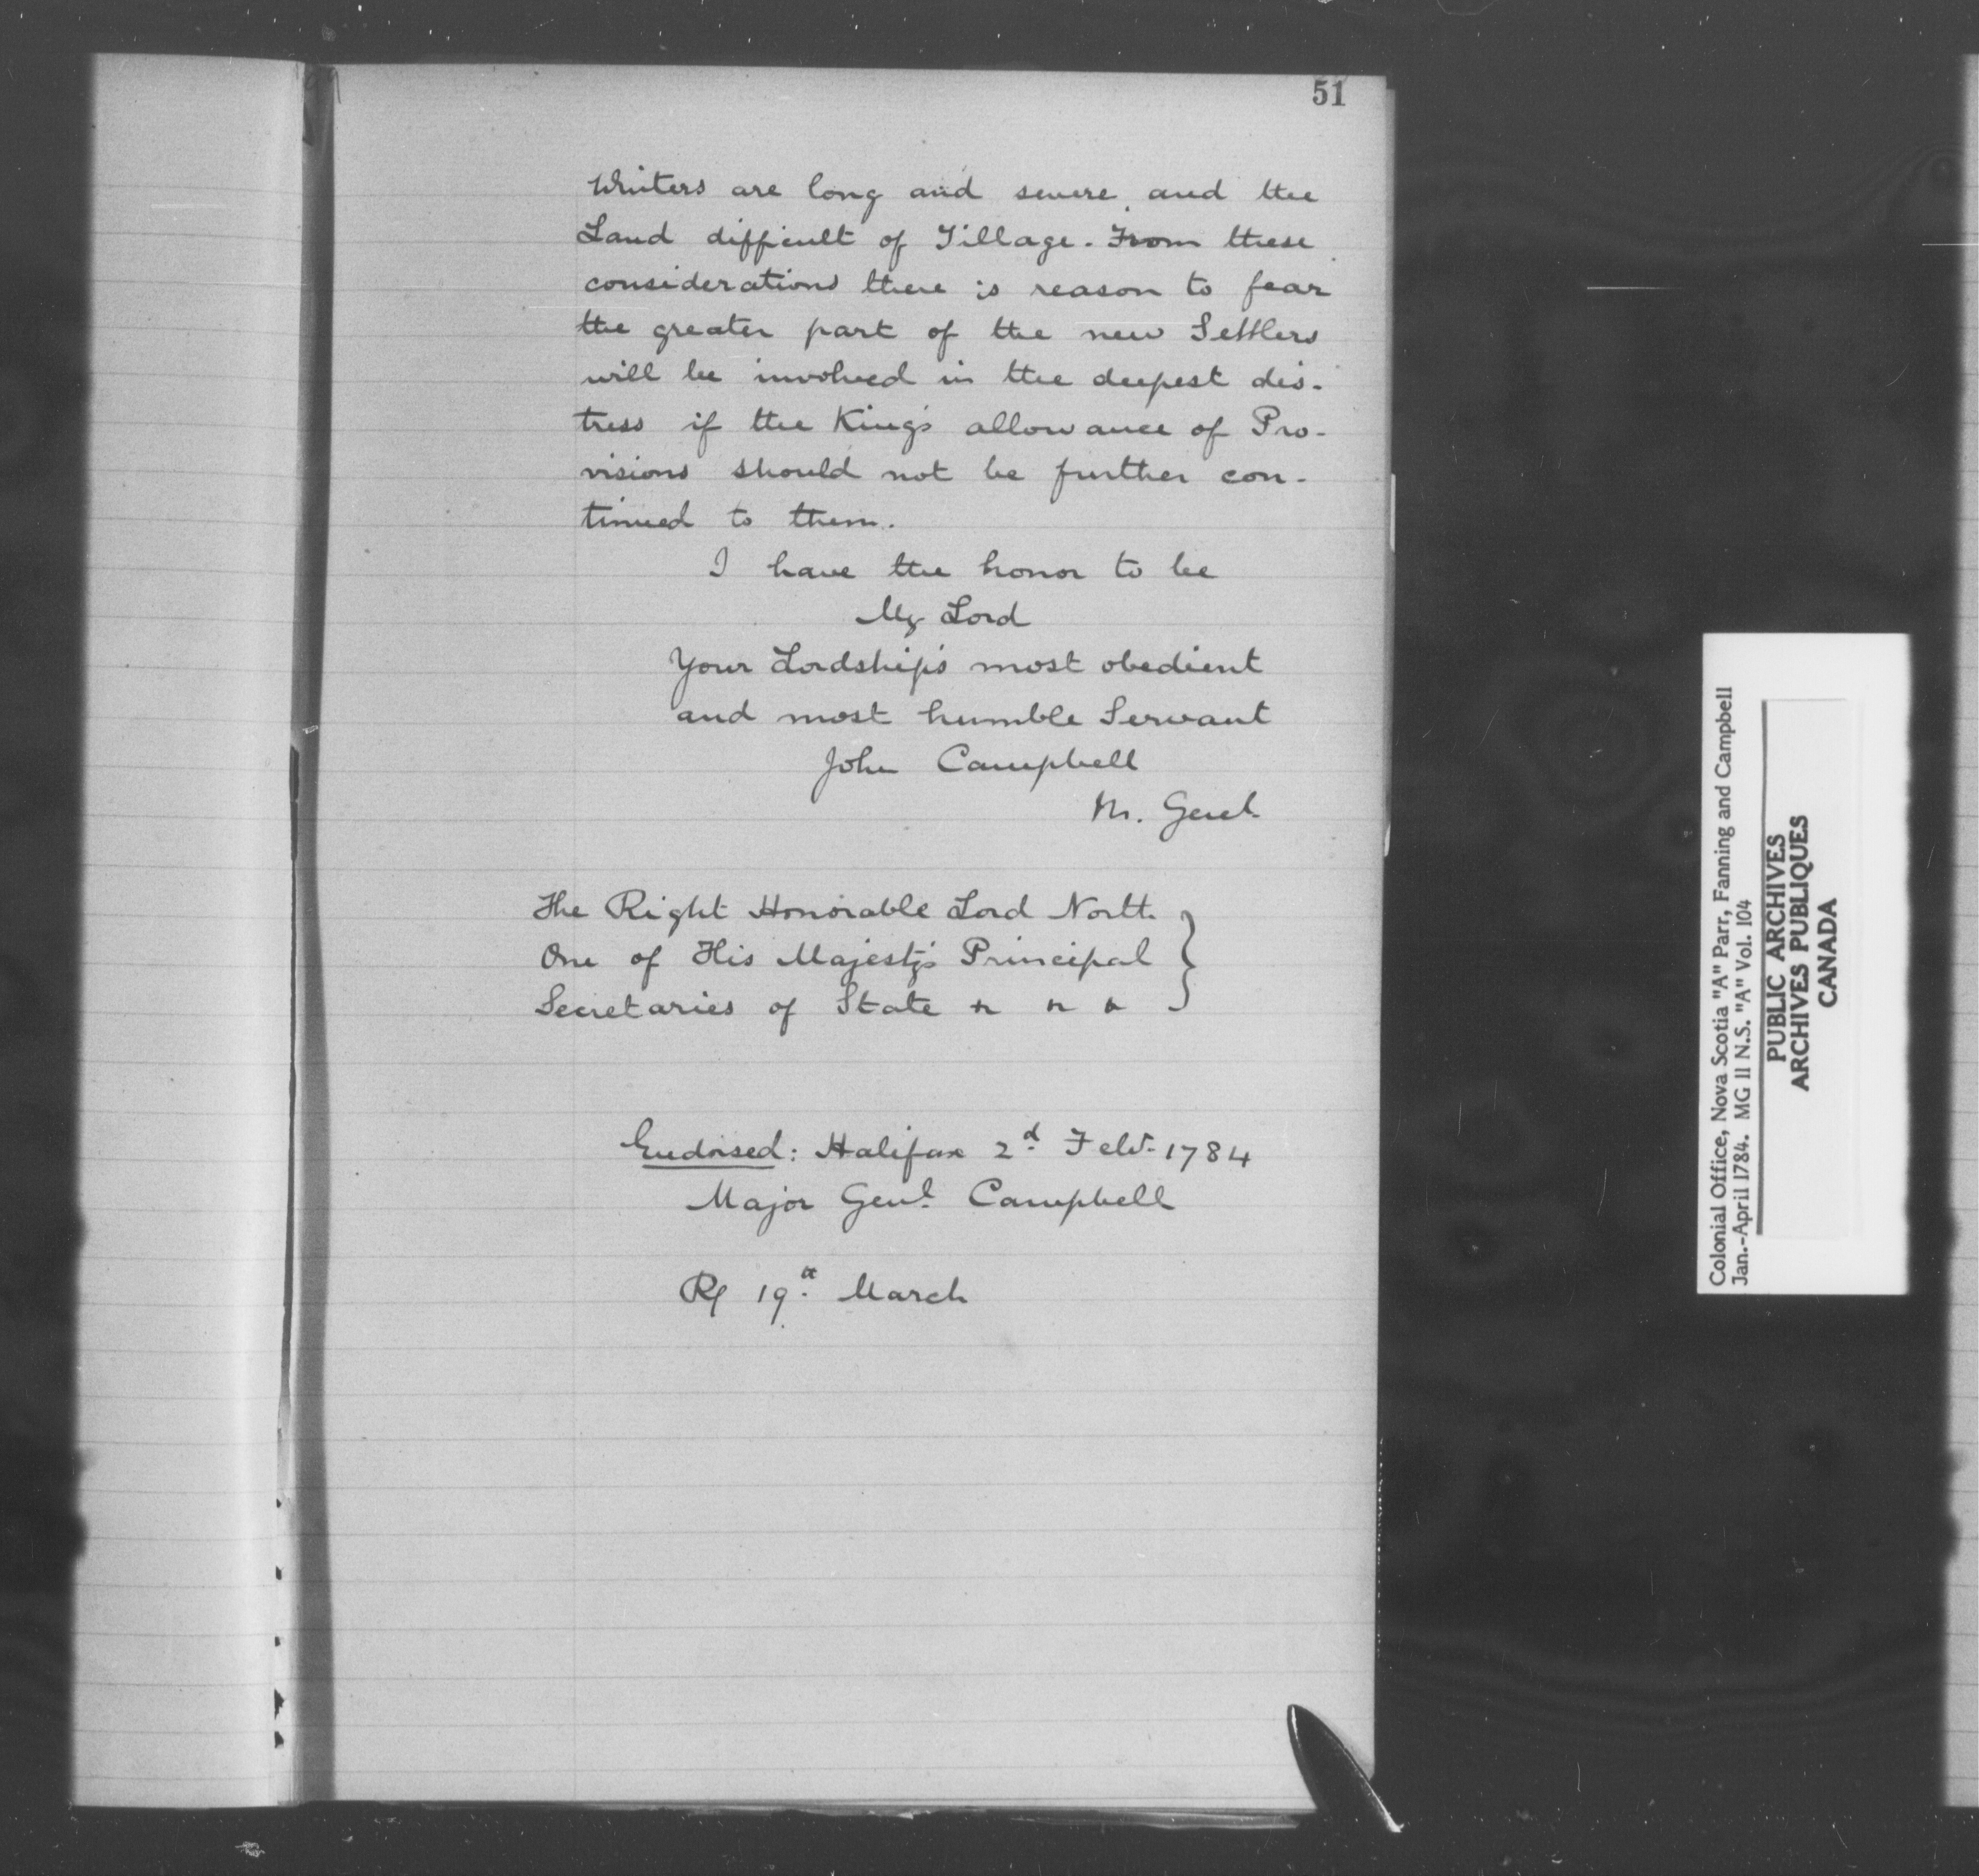 51
Winters are long and severe, and the
Land difficult of Tillage. From these
considerations there is reason to fear
the greater part of the new Settlers
will be involved in the deepest dis-
tress if the King's allowance of Pro-
visions should not be further con-
tinued to them.
I have the honor to be
My Lord
Your Lordship's most obedient
and most humble Servant
John Campbell
M. Genl.
The Right Honorable Lord North
One of His Majesty's Principal
Secretaries of State & & &
Endorsed: Halifax 2d Feby. 1784
Major Genl. Campbell
R/ 19th March
Colonial Office, Nova Scotia "A" Parr, Fanning and Campbell
Jan.-April 1784. MG 11 N.S. "A" Vol. 104
PUBLIC ARCHIVES
ARCHIVES PUBLIQUES
CANADA